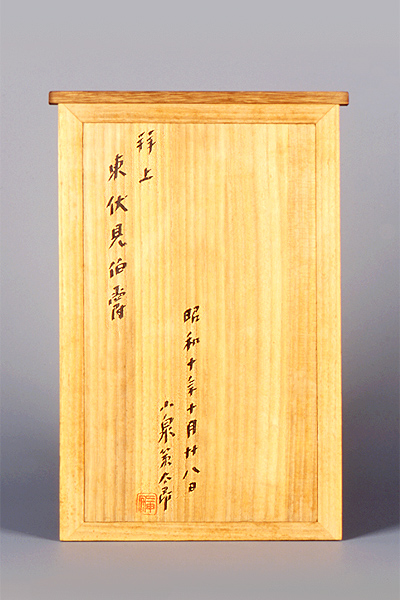 昭和十年十月廿八日
小泉策太郎
拜上
東伏見伯爵